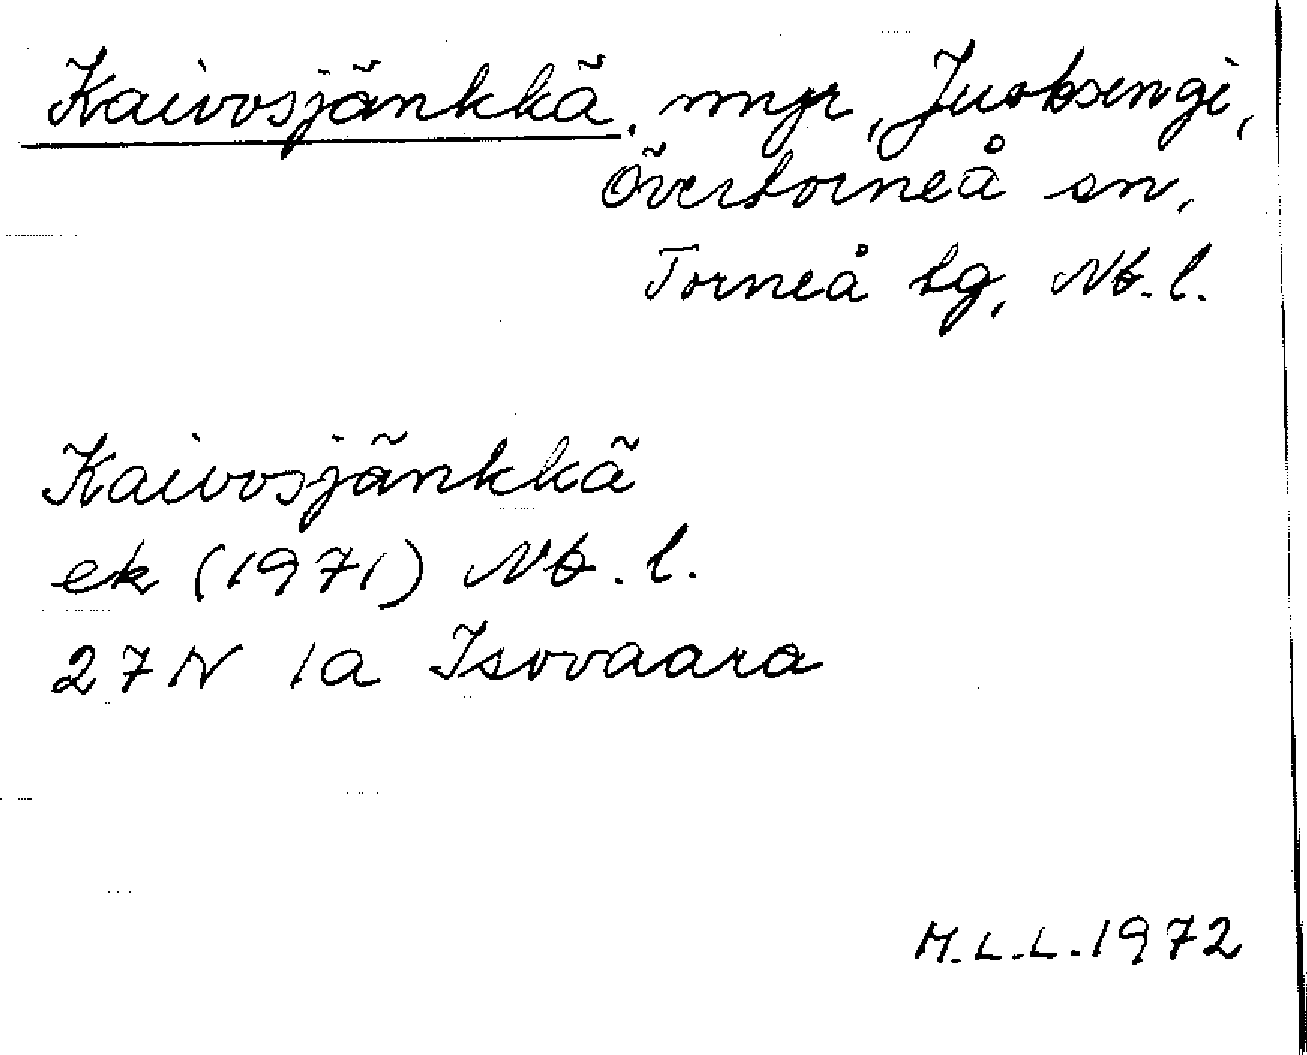 Kaivosjänkkä, myr, Juoksengi,
Övertorneå sn,
Torneå tg, Nb.l.
Kaivosjänkkä
ek (1971) Nb.l.
27N 1a Isovaara
M.L.L. 1972